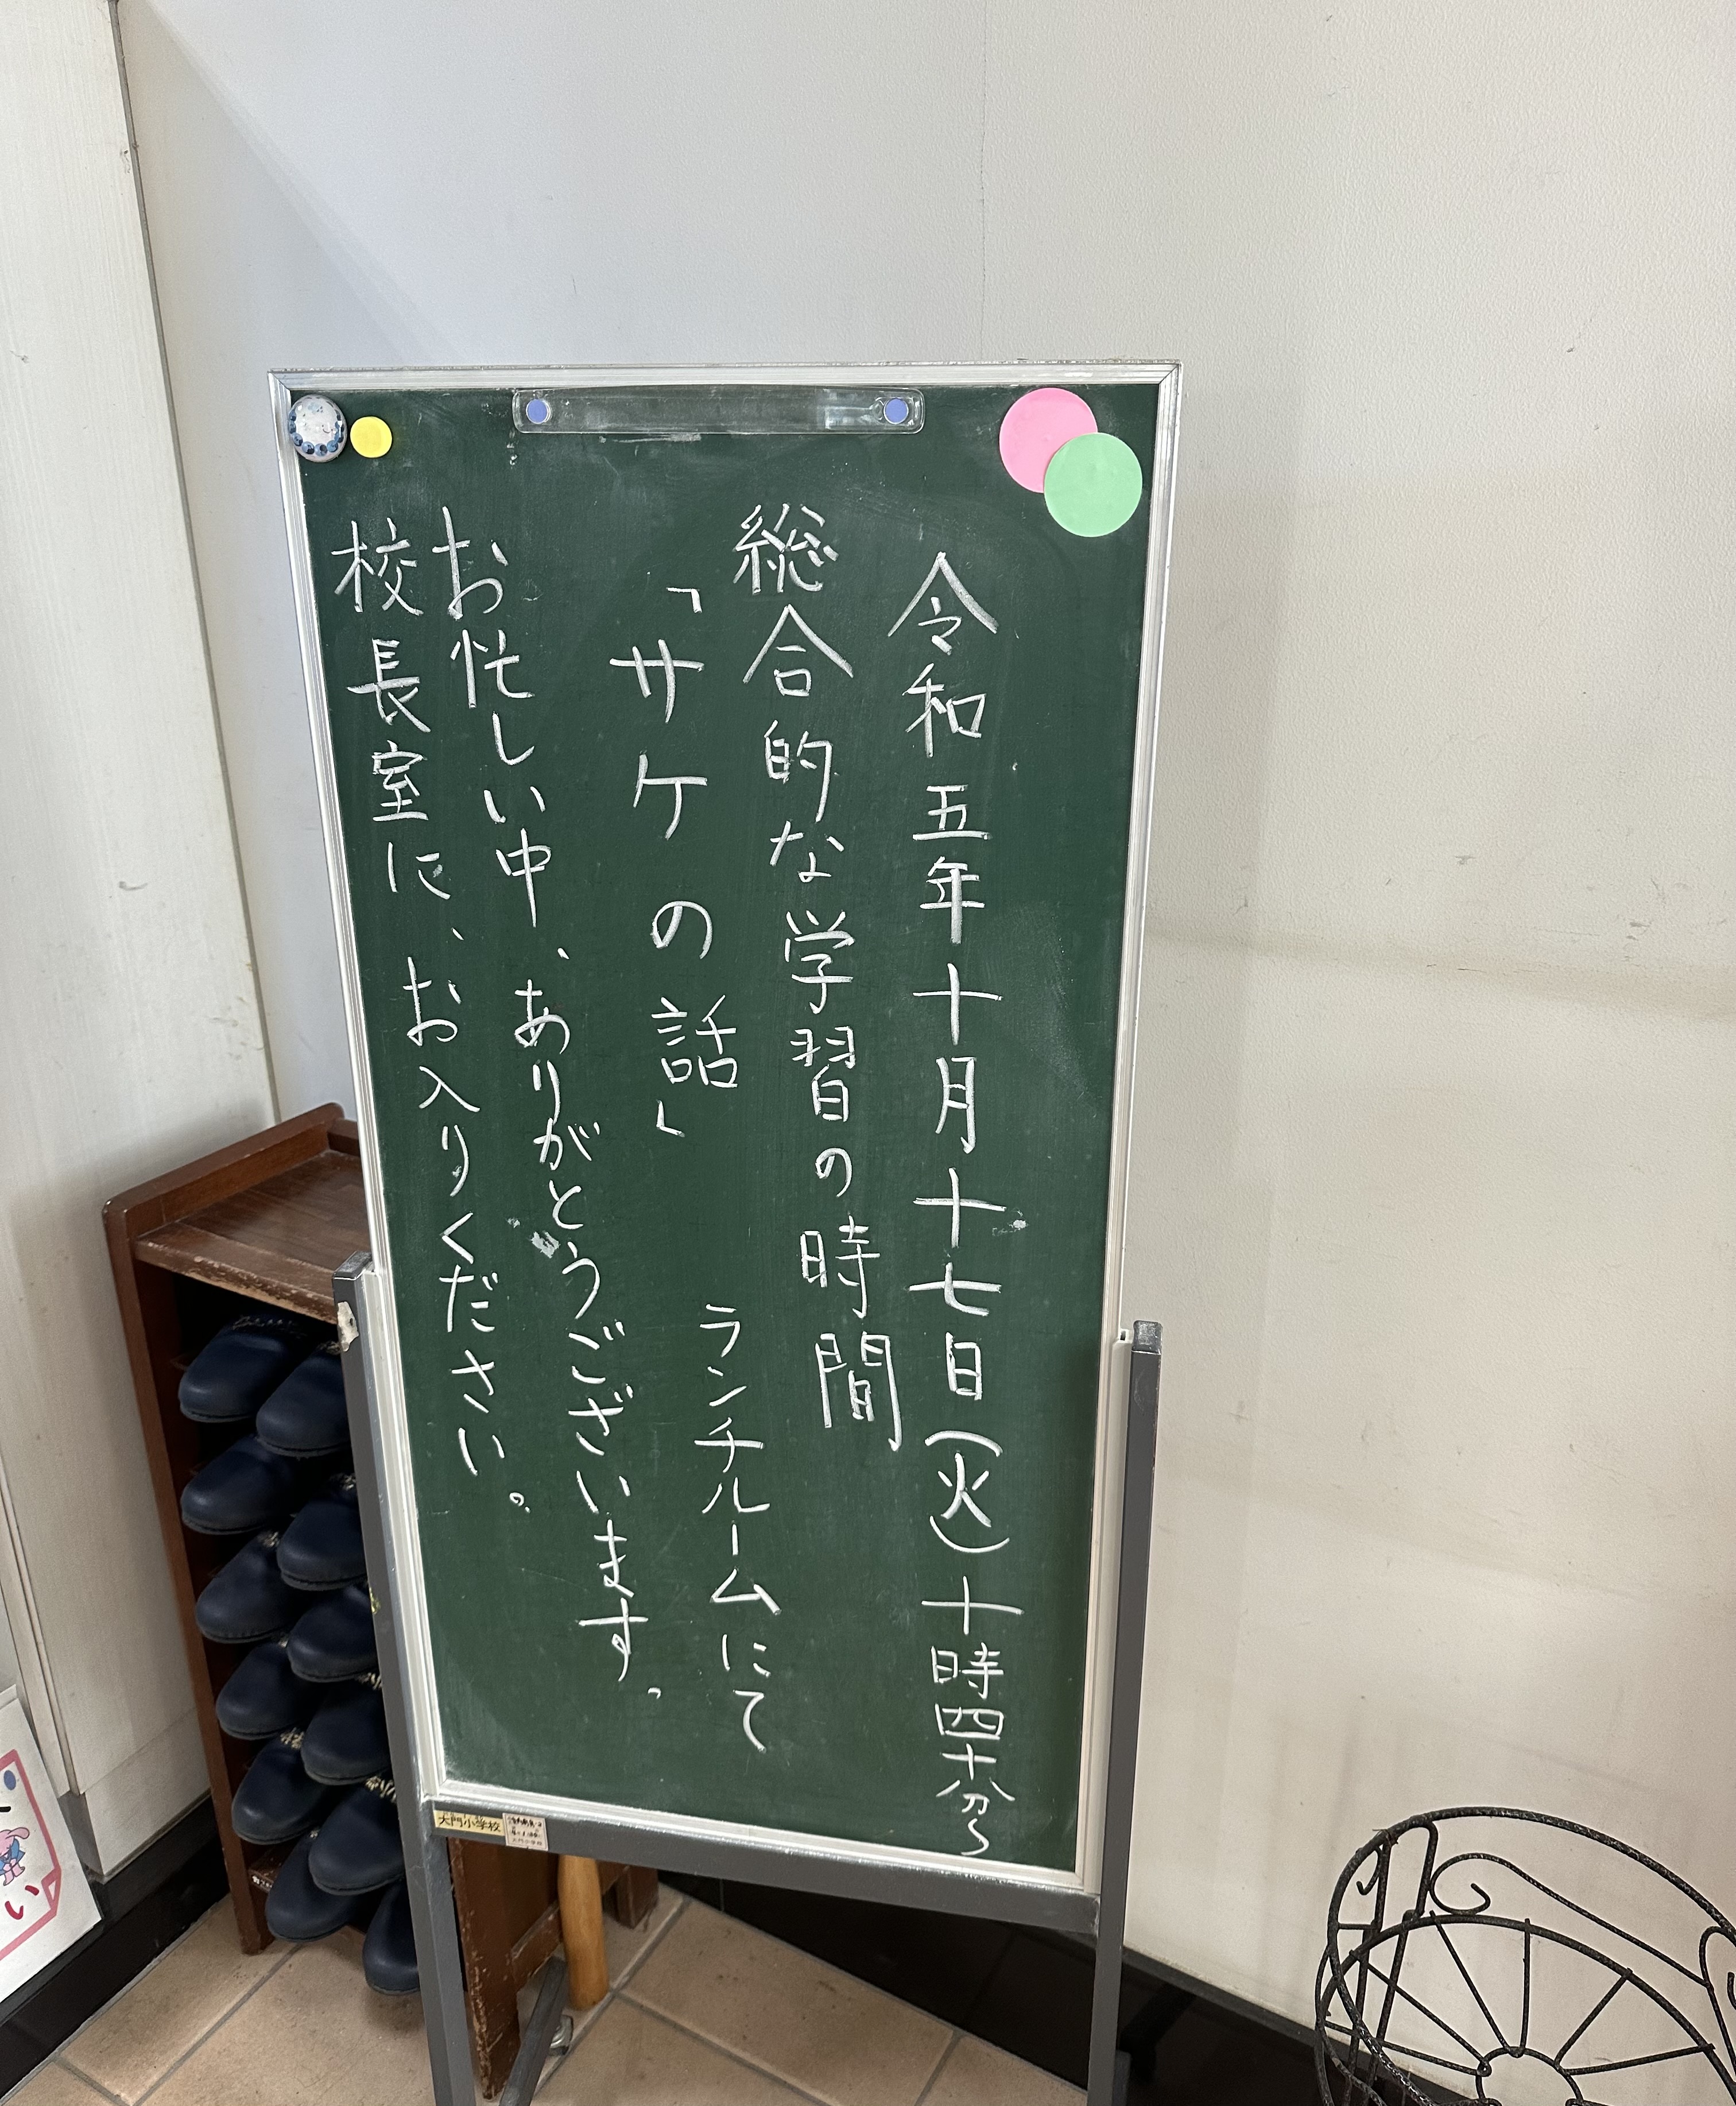 令和五年十月十七日（火）十時四十分〜
総合的な学習の時間
「サケの話」
ランチルームにて
お忙しい中、ありがとうございます。
校長室に、お入りください。
大門小学校
い